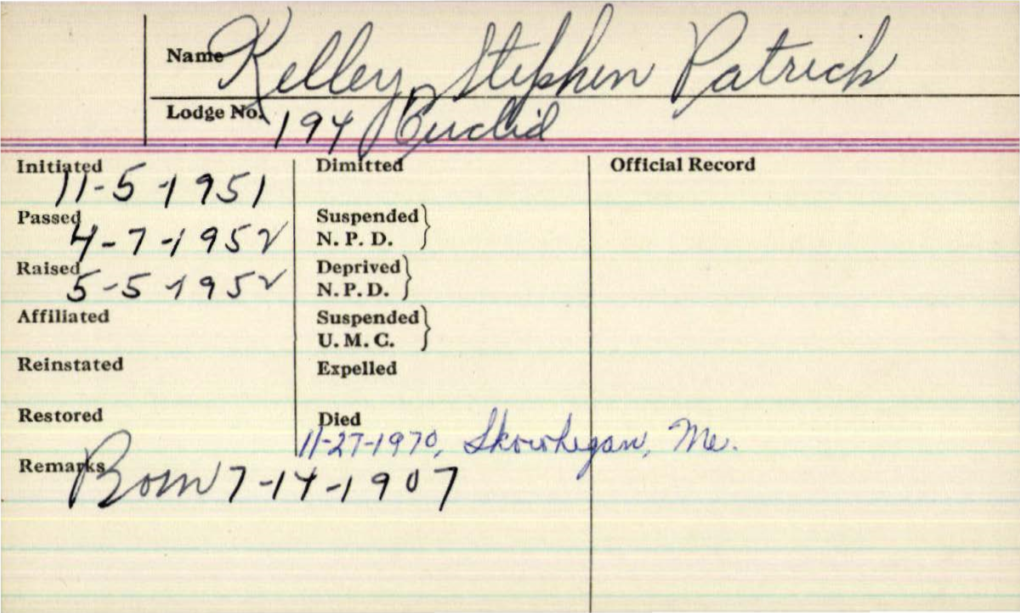 Name Kelley, Stephen Patrick
Lodge No. 194 Euclid
Initiated 11-5-1951
Dimitted
Official Record
Passed 4-7-1952
Suspended N. P. D.
Raised 5-5-1952
Deprived N. P. D.
Affiliated
Suspended U. M. C.
Reinstated
Expelled
Restored
Died 11-27-1970, Skowhegan, Me.
Remarks Born 7-14-1907